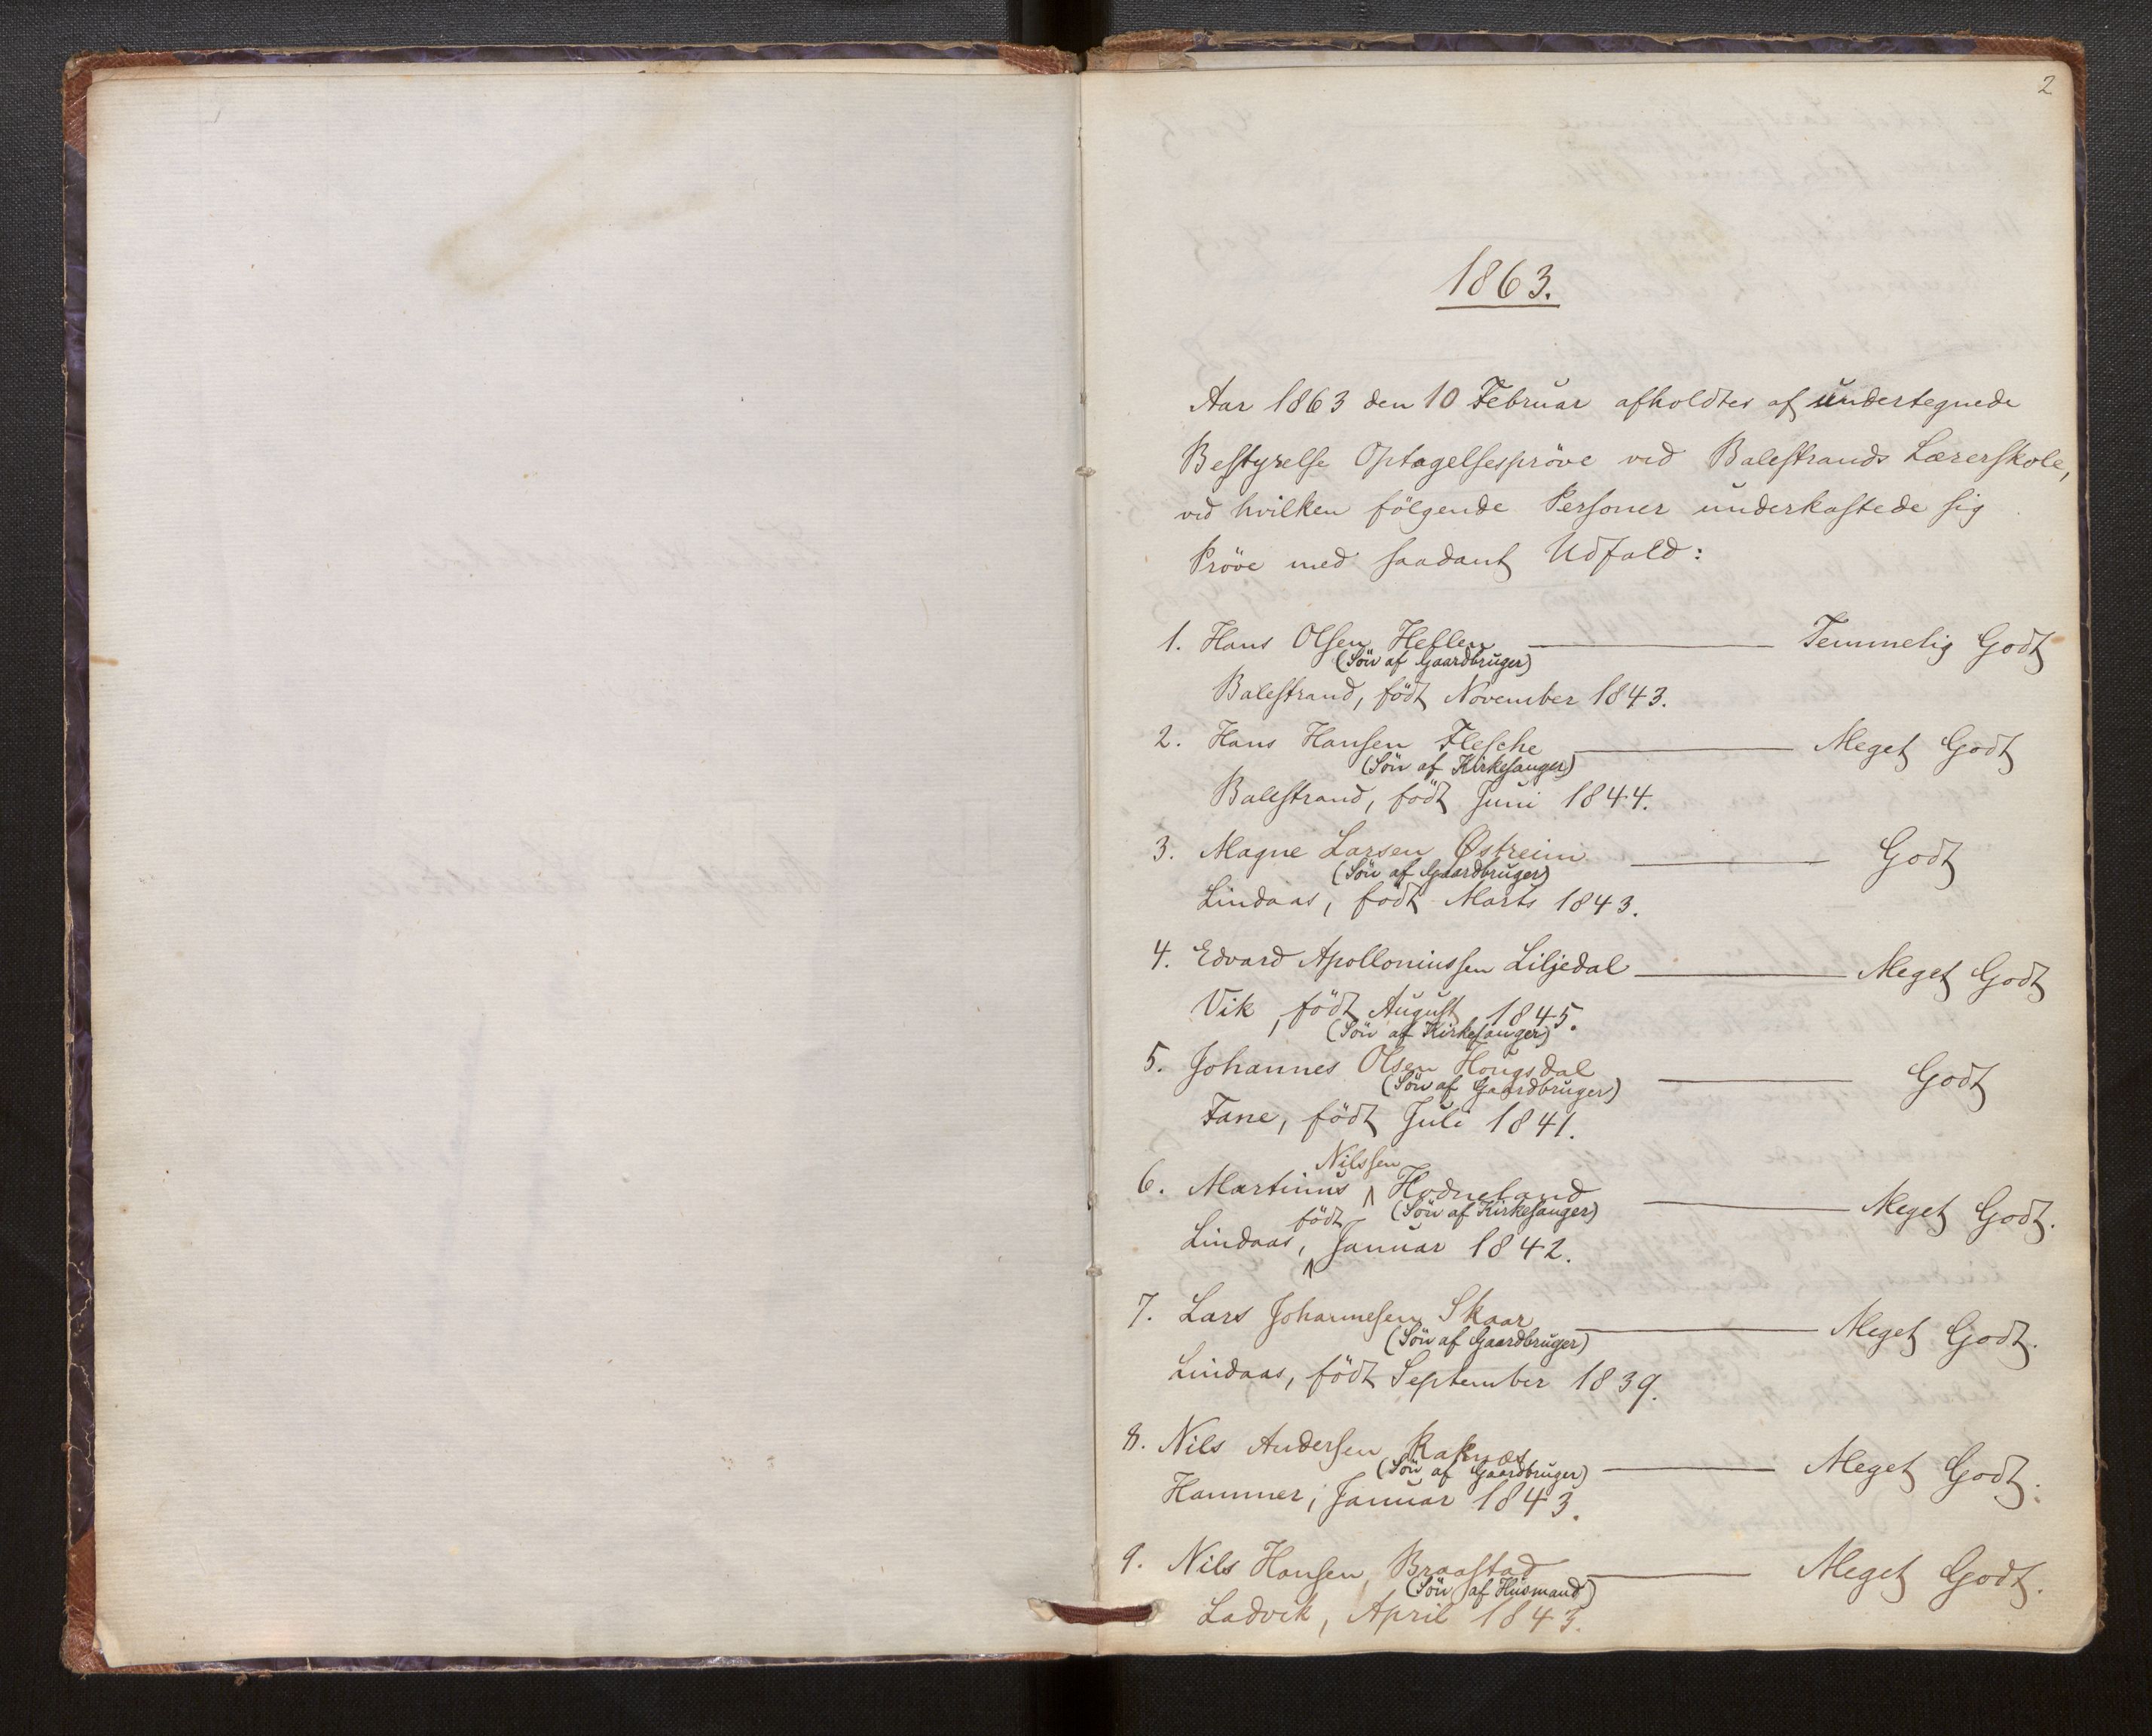 2
1863.
Aar 1863 den 10 Februar afholdtes af undertegnede
Bestyrelse Optagelsespröve ved Balestrands Lærerskole,
ved hvilken fölgende Personer underkastede sig
Pröve med saadant Udfald:
1. Hans Olsen Hellen — Temmelig Godt
(Sön af Gaardbruger)
Balestrand, födt November 1843.
2. Hans Hansen Flesche — Meget Godt
(Sön af Kirkesanger)
Balestrand, födt Juni 1844.
3. Magne Larsen Østreim — Godt
(Sön af Gaardbruger)
Lindaas, födt Marts 1843.
4. Edvard Apolloniussen Liljedal — Meget Godt
Vik, födt August 1845.
(Sön af Kirkesanger)
5. Johannes Olsen Hougsdal — Godt
(Sön af Gaardbruger)
Fane, födt Juli 1841.
6. Martinus Nilssen Hodneland — Meget Godt.
(Sön af Kirkesanger)
Lindaas, födt Januar 1842.
7. Lars Johannesen Skaar — Meget Godt.
(Sön af Gaardbruger)
Lindaas, födt September 1839.
8. Nils Andersen Raknæs — Meget Godt.
(Sön af Gaardbruger)
Hammer, Januar 1843.
9. Nils Hansen Braastad — Meget Godt.
(Sön af Husmand)
Ladvik, April 1843.